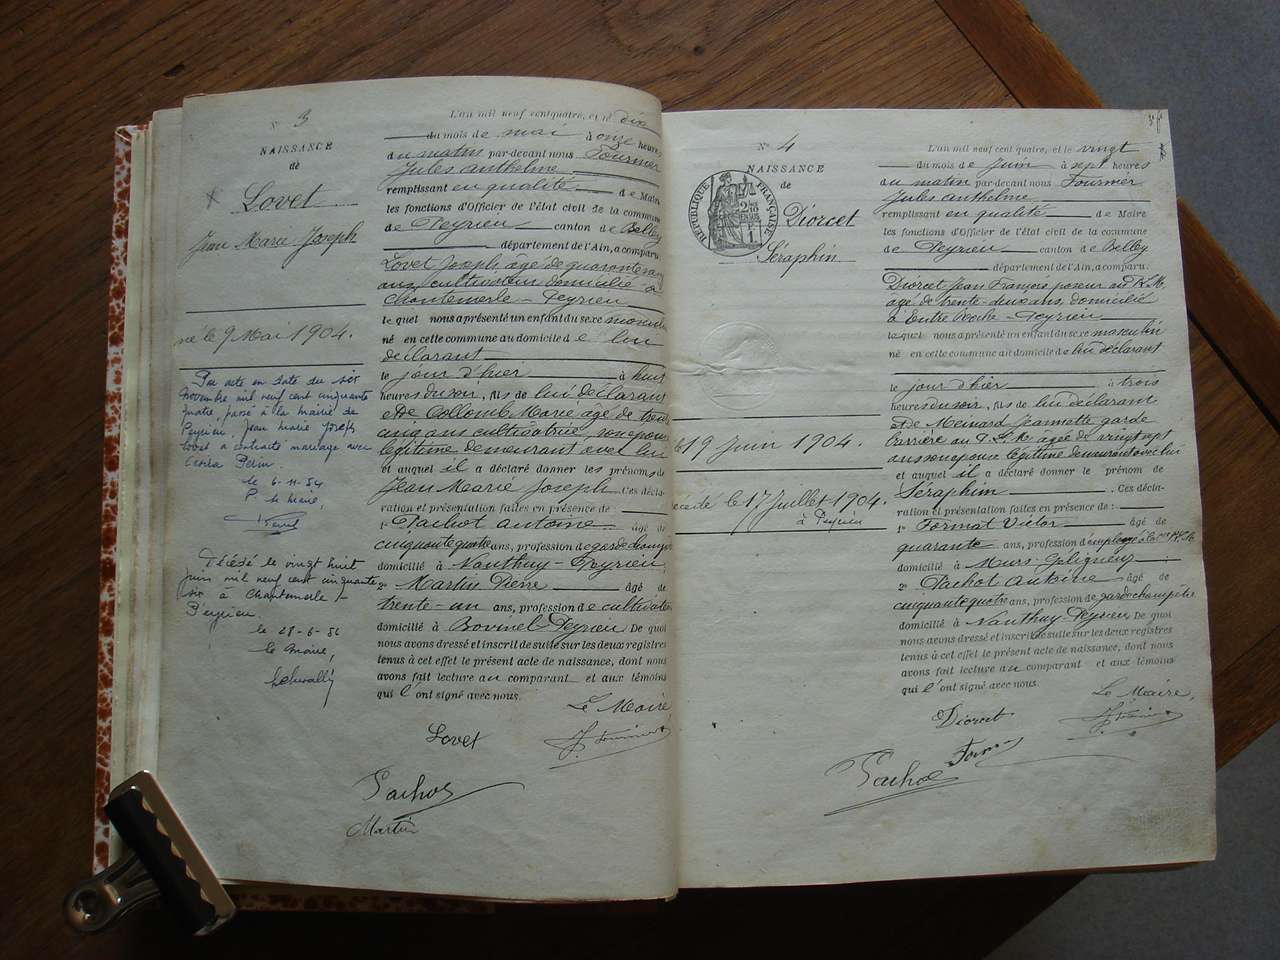 N° 3
NAISSANCE
de
Lovet
Jean Marie Joseph
né le 9 Mai 1904.
Par acte en date du six
novembre mil neuf cent cinquante
quatre, passé à la mairie de
Peyrieu, Jean Marie Joseph
Lovet a contracté mariage avec
le 6-11-54
Le maire,
Décédé le vingt huit
juin mil neuf cent cinquante
six à Chantemerle
Peyrieu.
le 28-6-56
Le Maire,
L'an mil neuf cent quatre, et le dix
du mois de mai à onze heures
du matin par-devant nous Fournier
Jules Anthelme
remplissant en qualité de Maire
les fonctions d'Officier de l'état civil de la commune
de Peyrieu canton de Belley
département de l'Ain, a comparu
Lovet Joseph, âgé de quarante
ans, cultivateur domicilié à
Chantemerle - Peyrieu
lequel nous a présenté un enfant du sexe masculin
né en cette commune au domicile de lui
déclarant
le jour d'hier à huit
heures du soir, fils de lui déclarant
et de Collomb Marie âgé de trente
cinq ans cultivatrice, son épouse
légitime demeurant avec lui
et auquel il a déclaré donner les prénoms de
Jean Marie Joseph Ces décla-
ration et présentation faites en présence de
1° Pachot Antoine âgé de
cinquante quatre ans, profession de garde champêtre
domicilié à Nanthuy - Peyrieu
2° Martin Pierre âgé de
trente-un ans, profession de cultivateur
domicilié à Bovinel - Peyrieu De quoi
nous avons dressé et inscrit de suite sur les deux registres
tenus à cet effet le présent acte de naissance, dont nous
avons fait lecture au comparant et aux témoins
qui l'ont signé avec nous.
Le Maire
Lovet
J. Fournier
Pachot
Martin
N° 4
NAISSANCE
de
RÉPUBLIQUE FRANÇAISE
Diorcet
Séraphin
le 19 Juin 1904.
décédé le 17 Juillet 1904.
à Peyrieu
L'an mil neuf cent quatre, et le vingt
du mois de Juin à sept heures
du matin par-devant nous Fournier
Jules Anthelme
remplissant en qualité de Maire
les fonctions d'Officier de l'état civil de la commune
de Peyrieu canton de Belley
département de l'Ain, a comparu
Diorcet Jean François poseur au P.L.M.
âgé de trente-deux ans, domicilié
à Entre Roche - Peyrieu
lequel nous a présenté un enfant du sexe masculin
né en cette commune au domicile de lui déclarant
le jour d'hier à trois
heures du soir, fils de lui déclarant
et de Meinard Jeannette garde
barrière au P.L.M. âgée de vingt sept
ans son épouse légitime demeurant avec lui
et auquel il a déclaré donner le prénom de
Séraphim Ces décla-
ration et présentation faites en présence de :
1° Format Victor âgé de
quarante ans, profession d'employé
domicilié à Murs-Géligneux
2° Pachot Antoine âgé de
cinquante quatre ans, profession de garde champêtre
domicilié à Nanthuy Peyrieu De quoi
nous avons dressé et inscrit de suite sur les deux registres
tenus à cet effet le présent acte de naissance, dont nous
avons fait lecture au comparant et aux témoins
qui l'ont signé avec nous.
Le Maire,
Diorcet
J. Fournier
Pachot